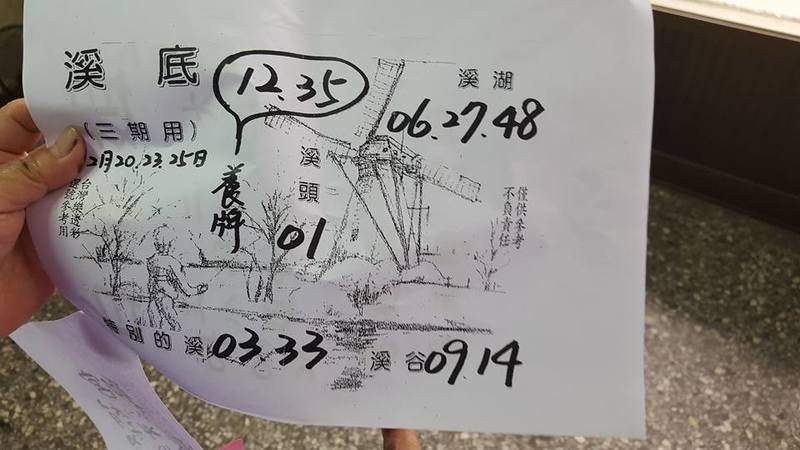 溪底
(三期用)
2月20.23.25日
台灣樂透彩
選號參考用
12.35
養牌
溪頭
01
溪湖
06.27.48
僅供參考
不負責任
特別的溪 03.33
溪谷 09.14